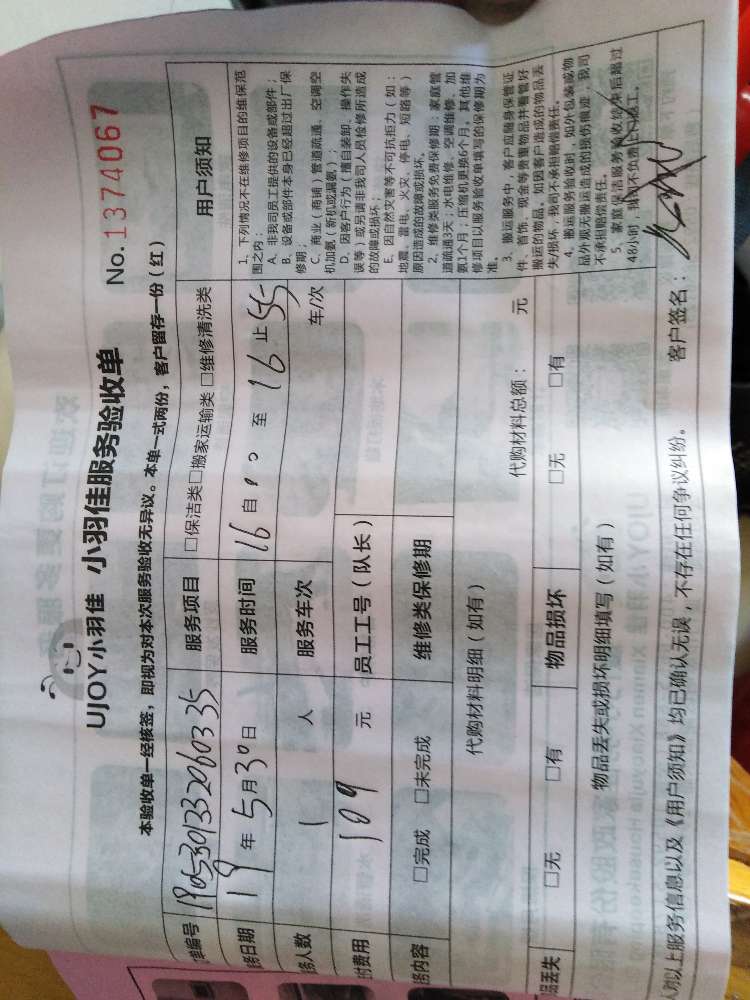 UJOY小羽佳 小羽佳服务验收单
No. 1374067
本验收单一经核签，即视为对本次服务验收无异议。本单一式两份，客户留存一份（红）
单编号 1905301332060335
服务项目 □保洁类□搬家运输类 □维修清洗类
务日期 19年5月30日
服务时间 16自00至16止55
务人数 1人
服务车次 车/次
付费用 109元
员工工号（队长）
务内容 □完成 □未完成
维修类保修期
代购材料明细（如有）
代购材料总额： 元
品丢失 □无 □有
物品损坏 □无 □有
物品丢失或损坏明细填写（如有）
用户须知
1、下列情况不在维修项目的维保范
围之内：
A、非我司员工提供的设备或部件；
B、设备或部件本身已经超过出厂保
修期；
C、商业（商铺）管道疏通、空调空
机加氨（新机或漏氨）；
D、因客户行为（擅自装卸、操作失
误等）或另请非我司人员检修所造成
的故障或损坏；
E、因自然灾害等不可抗拒力（如：
地震、雷电、火灾、停电、短路等）
原因造成的故障或损坏。
2、维修类服务免费保修期：家庭管
道疏通3天；水电维修、空调维修、加
氨1个月；压缩机更换6个月。其他维
修项目以服务验收单填写的保修期为
准。
3、搬运服务中，客户应随身保管证
件、首饰、现金等贵重物品并看管好
搬运的物品。如因客户造成的物品丢
失/损坏，我司不承担赔偿责任。
4、搬运服务验收时，如外包装或物
品外观无搬运造成的损伤痕迹，我司
不承担赔偿责任。
5、家庭保洁服务验收结束后超过
48小时，我司不负责上门返工。
对以上服务信息以及《用户须知》均已确认无误，不存在任何争议纠纷。
客户签名：